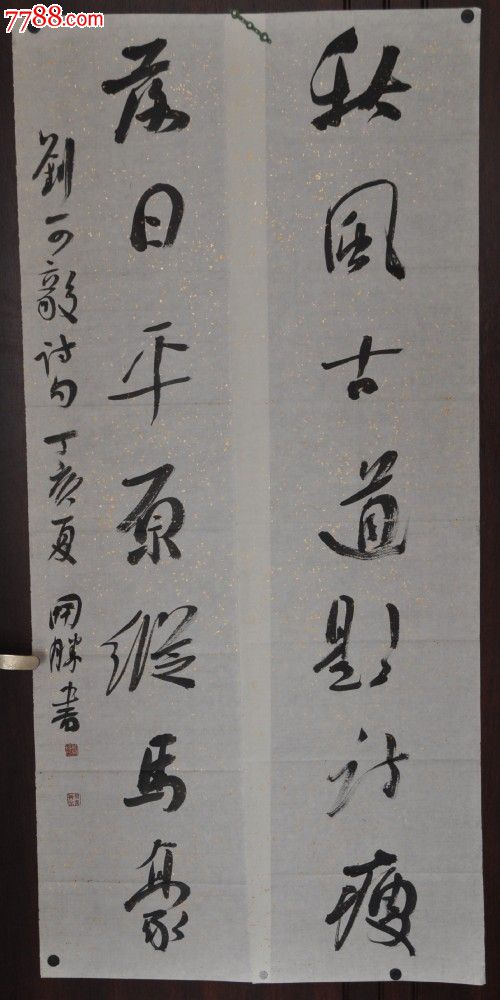 7788.com
秋風古道題詩瘦
落日平原縱馬豪
劉可毅詩句 丁亥夏 開勝書